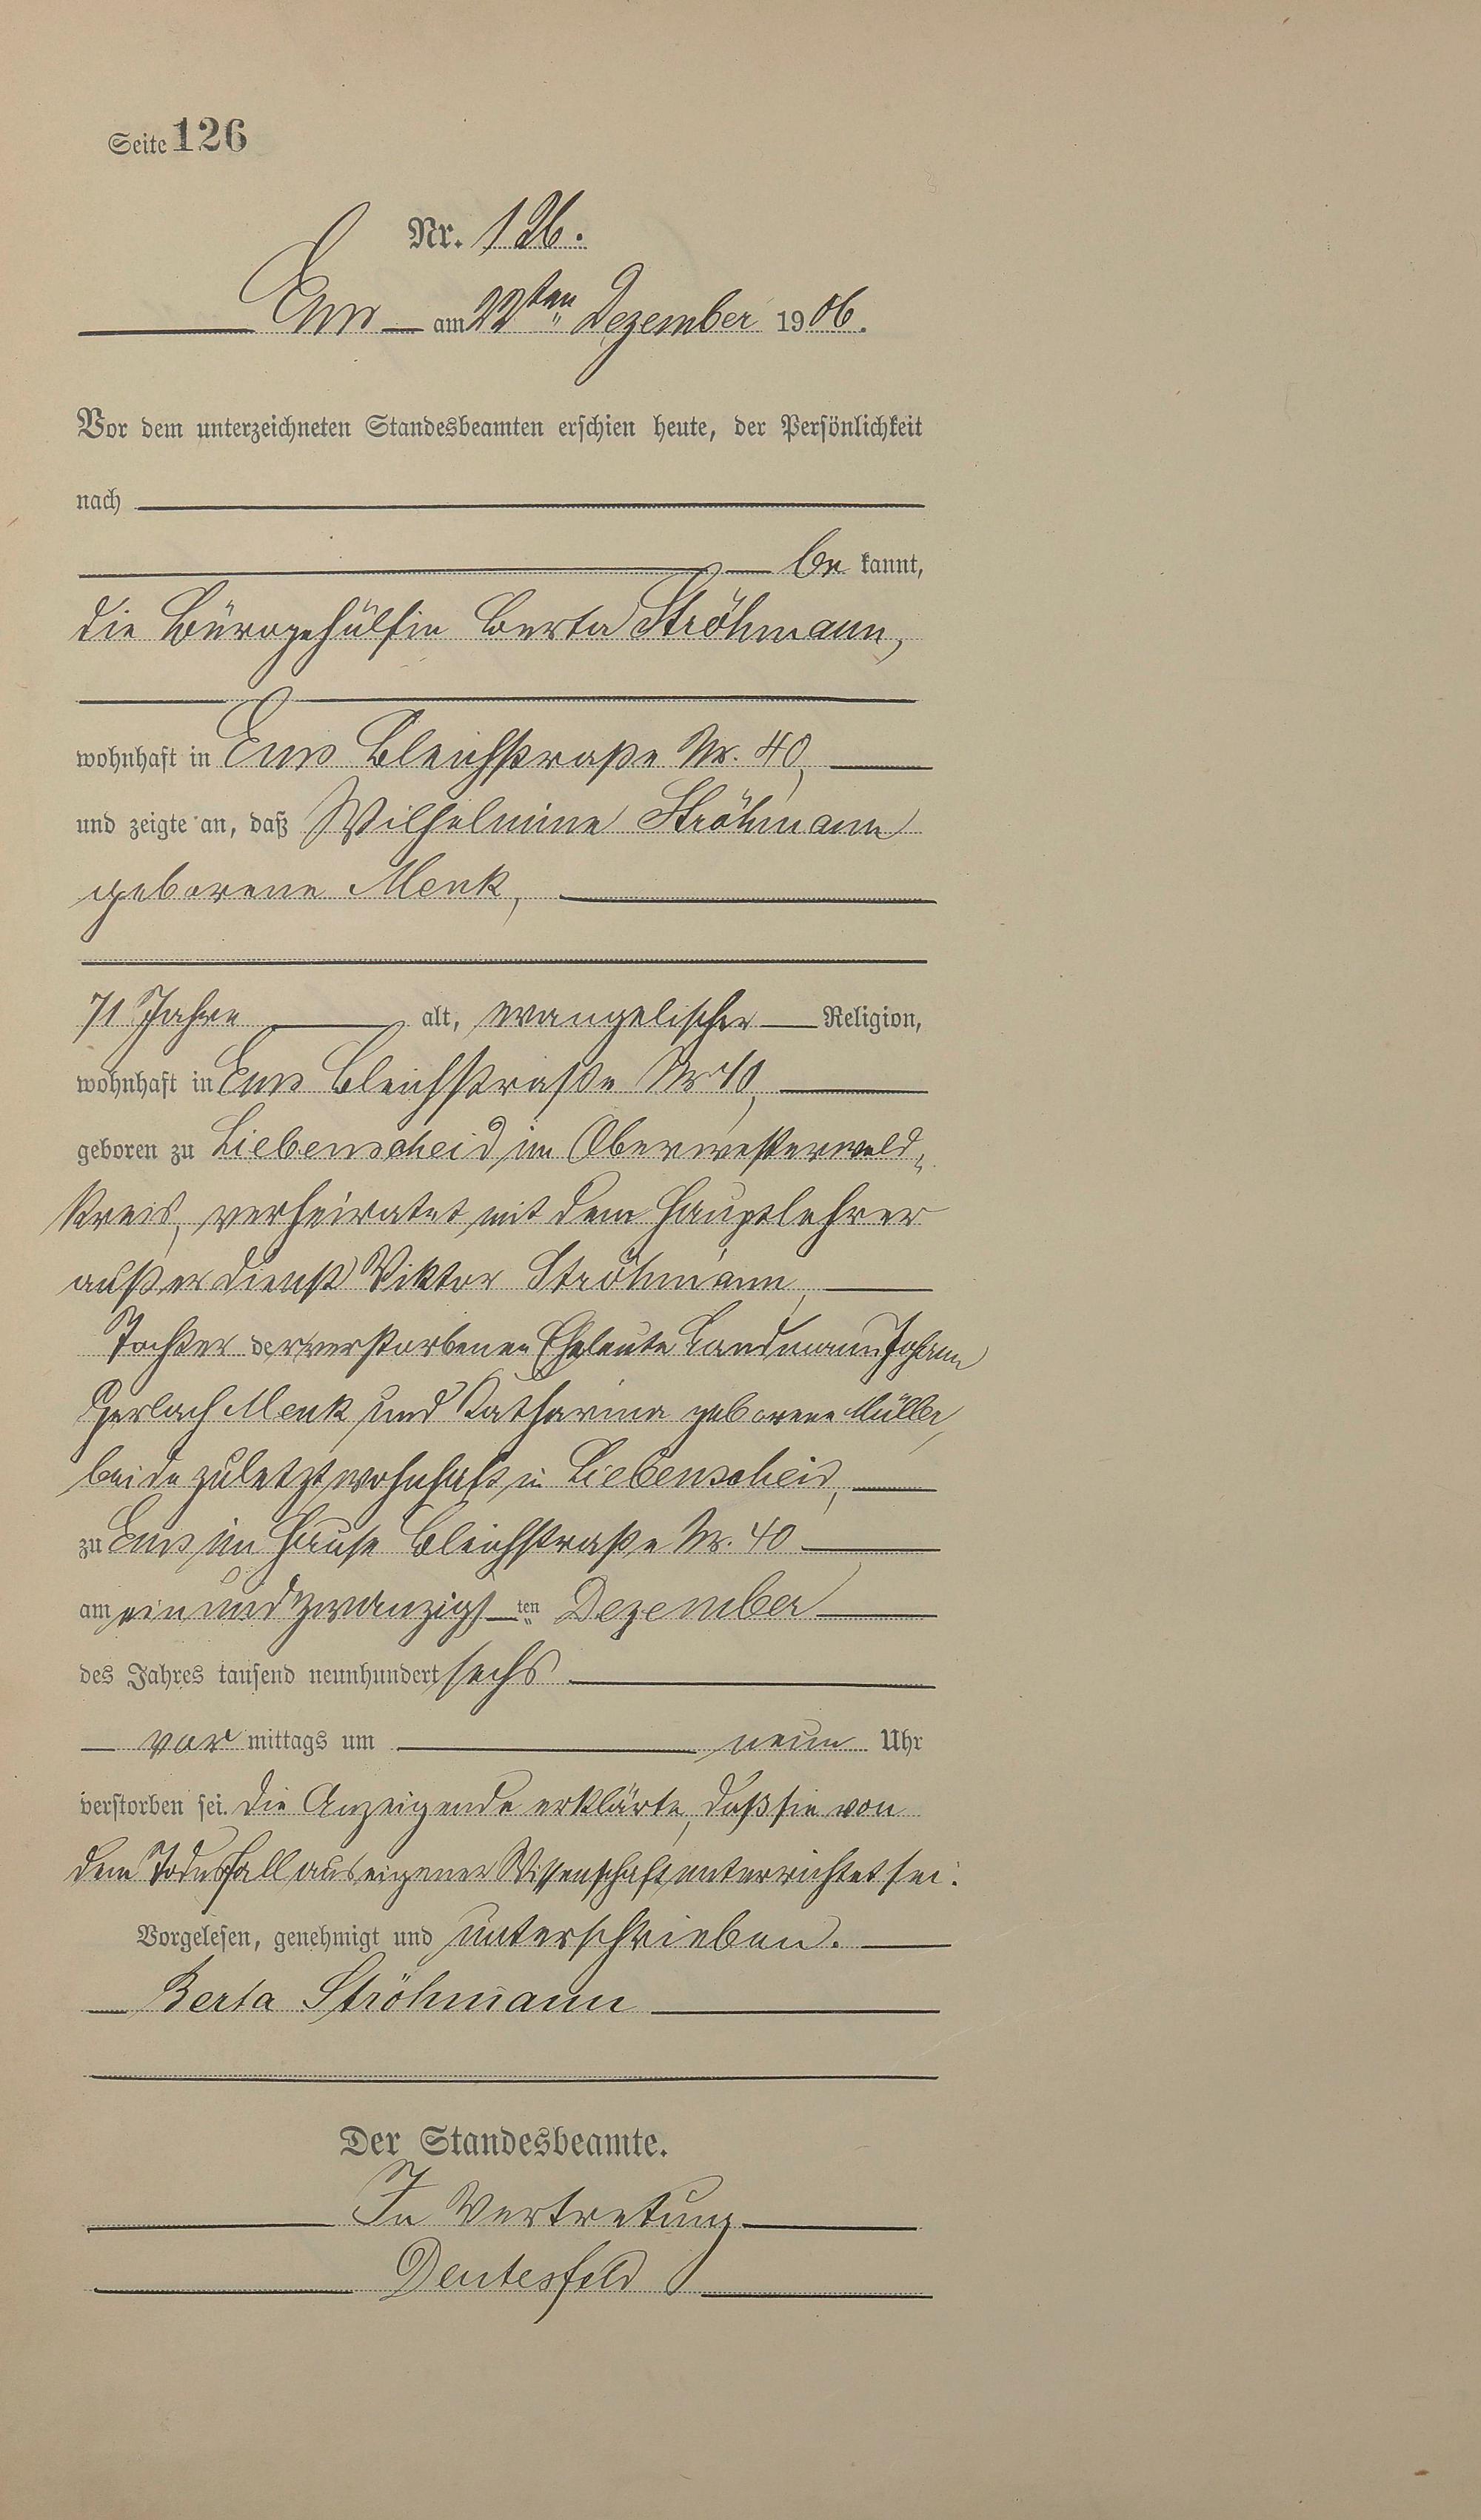 Seite 126
Nr. 126.
Ems am 22ten Dezember 1906.
Vor dem unterzeichneten Standesbeamten erschien heute, der Persönlichkeit
nach
be kannt,
die Bürogehülfin Berta Ströhmann,
wohnhaft in Ems Bleichstraße Nr. 40,
und zeigte an, daß Wilhelmine Ströhmann
geborene Menk,
71 Jahre alt, evangelischer Religion,
wohnhaft in Ems Bleichstraße Nr 40,
geboren zu Liebenscheid im Oberwesterwald-
kreis, verheiratet mit dem Hauptlehrer
außer Dienst Viktor Ströhmann,
Tochter der verstorbenen Eheleute Landmann Johann
Gerlach Menk und Katharina geborene Müller,
beide zuletzt wohnhaft in Liebenscheid,
zu Ems im Hause Bleichstraße Nr. 40
am ein und zwanzigsten Dezember
des Jahres tausend neunhundert sechs
vor mittags um neun Uhr
verstorben sei. Die Anzeigende erklärte, daß sie von
dem Todesfall aus eigener Wissenschaft unterrichtet sei.
Vorgelesen, genehmigt und unterschrieben.
Berta Ströhmann
Der Standesbeamte.
In Vertretung
Deutesfeld